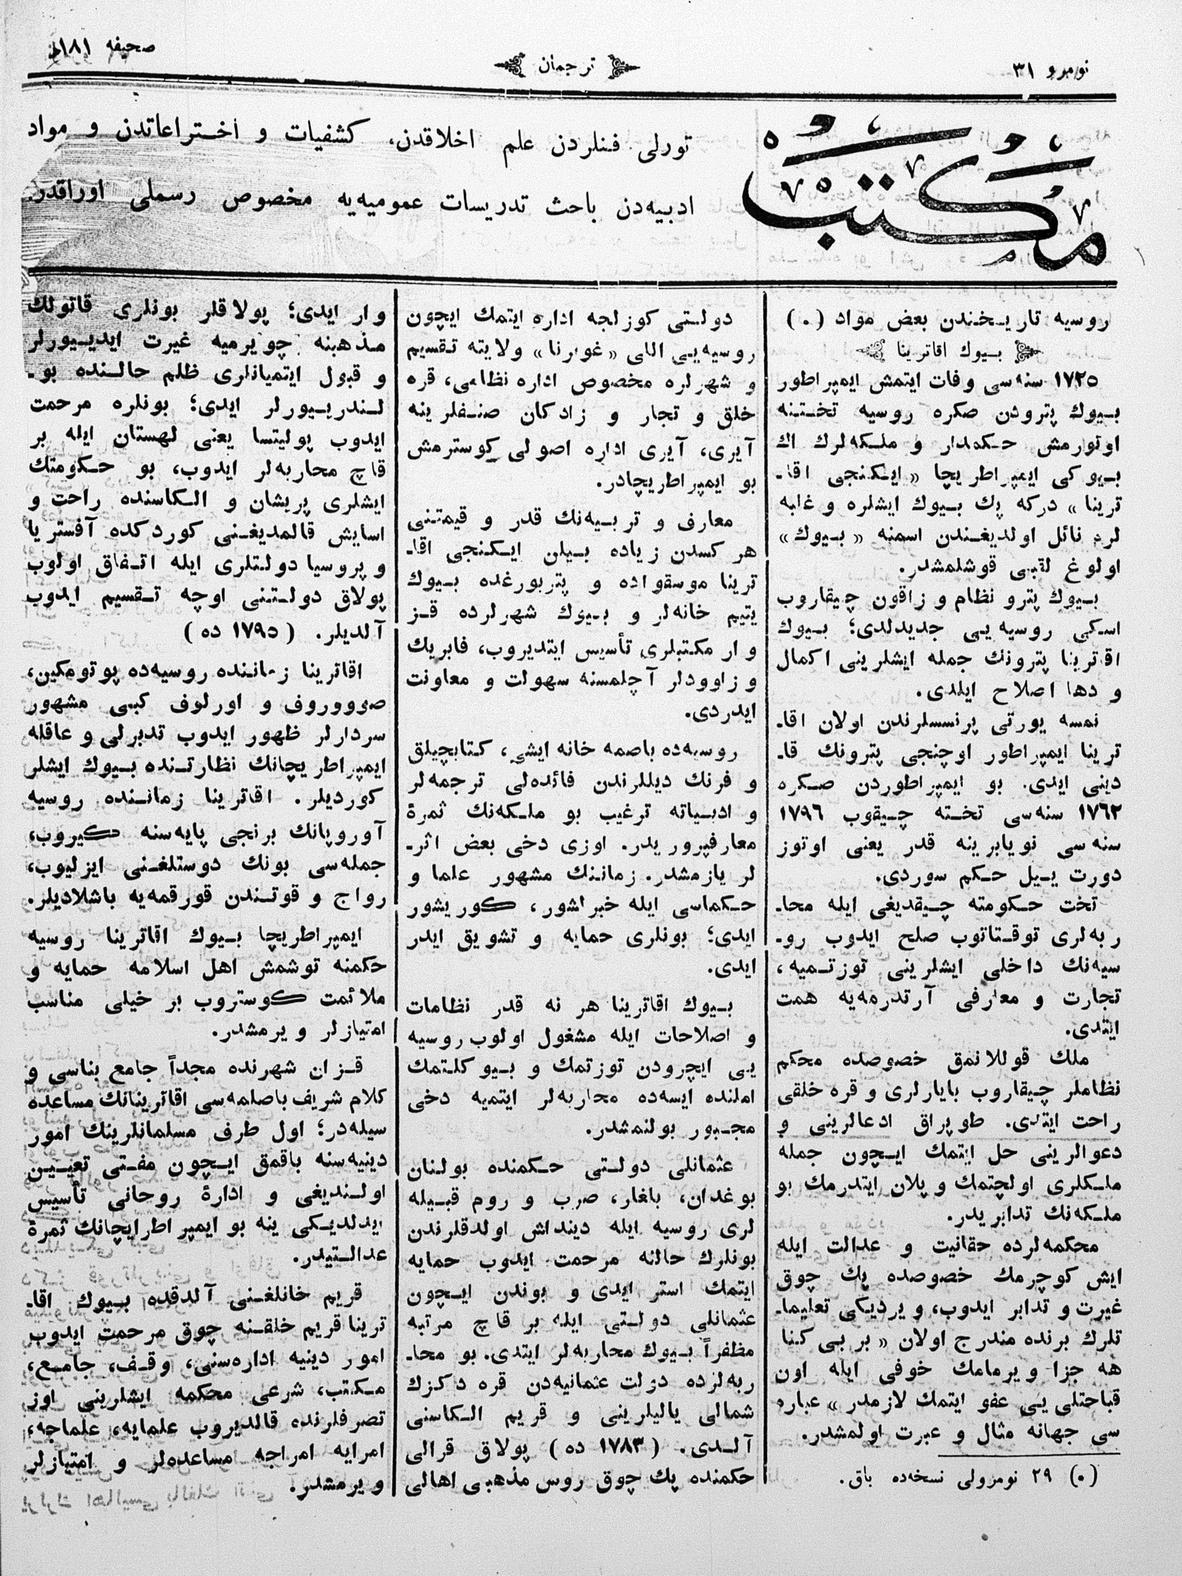 نومرو ٣١
ترجمان
صحیفه ١٨١
مكتب
تورلی فنلردن علم اخلاقدن، كشفیات و اختراعاتدن و مواد
ادبیه‌دن باحث تدریسات عمومیه‌یه مخصوص رسملی اوراقدر.
روسیه تاریخندن بعض مواد (٠)
بیوك اقاترینا
١٧٢٥ سنه‌سی وفات ایتمش ایمپراطور
بیوك پترودن صكره روسیه تختنه
اوتورمش حكمدار و ملكه‌لرك اك
بیوكی ایمپراطریچا «ایكنجی اقا-
ترینا» دركه پك بیوك ایشلره و غلبه
لره نائل اولدیغندن اسمنه «بیوك»
اولوغ لقبی قوشلمشدر.
بیوك پترو نظام و زاقون چیقاروب
اسكی روسیه‌یی جدیدلدی؛ بیوك
اقاترینا پترونك جمله ایشلرینی اكمال
و دها اصلاح ایلدی.
نمسه یورتی پرنسسلرندن اولان اقا-
ترینا ایمپراطور اوچنجی پترونك قا-
دینی ایدی. بو ایمپراطوردن صكره
١٧٦٢ سنه‌سی تخته چیقوب ١٧٩٦
سنه‌سی نویابرینه قدر یعنی اوتوز
دورت ییل حكم سوردی.
تخت حكومته چیقدیغی ایله محا-
ربه‌لری توقتاتوب صلح ایدوب رو-
سیه‌نك داخلی ایشلرینی توزتمیه،
تجارت و معارفی آرتدرمه‌یه همت
ایتدی.
ملك قوللانمق خصوصده محكم
نظاملر چیقاروب بایارلری و قره خلقی
راحت ایتدی. طوپراق ادعالرینی و
دعوالرینی حل ایتمك ایچون جمله
ملكلری اولچتمك و پلان ایتدرمك بو
ملكه‌نك تدابریدر.
محكمه‌لرده حقانیت و عدالت ایله
ایش كوچرمك خصوصده پك چوق
غیرت و تدابر ایدوب، ویردیكی تعلیما-
تلرك برنده مندرج اولان «بر بی كنا
هه جزا ویرمامك خوفی ایله اون
قباحتلی‌یی عفو ایتمك لازمدر» عباره
سی جهانه مثال و عبرت اولمشدر.
(٠) ٢٩ نومرولی نسخه‌ده باق.
دولتی كوزلجه اداره ایتمك ایچون
روسیه‌یی اللی «غوبرنا» ولایته تقسیم
و شهرلره مخصوص اداره نظامی، قره
خلق و تجار و زادكان صنفلرینه
آیری، آیری اداره اصولی كوسترمش
بو ایمپراطریچادر.
معارف و تربیه‌نك قدر و قیمتنی
هر كسدن زیاده بیلن ایكنجی اقا-
ترینا موسقواده و پتربورغده بیوك
یتیم خانه‌لر و بیوك شهرلرده قز
وار مكتبلری تأسیس ایتدیروب، فابریك
و زاوودلر آچلمسنه سهولت و معاونت
ایدردی.
روسیه‌ده باصمه خانه ایشی، كتابچیلق
و فرنك دیللرندن فائده‌لی ترجمه‌لر
و ادبیاته ترغیب بو ملكه‌نك ثمرۀ
معارفپروریدر. اوزی دخی بعض اثر-
لر یازمشدر. زماننك مشهور علما و
حكماسی ایله خبراشور، كوریشور
ایدی؛ بونلری حمایه و تشویق ایدر
ایدی.
بیوك اقاترینا هر نه قدر نظامات
و اصلاحات ایله مشغول اولوب روسیه
یی ایچرودن توزتمك و بیوكلتمك
املنده ایسه‌ده محاربه‌لر ایتمیه دخی
مجبور بولنمشدر.
عثمانلی دولتی حكمنده بولنان
بوغدان، بلغار، صرب و روم قبیله
لری روسیه ایله دینداش اولدقلرندن
بونلرك حالنه مرحمت ایدوب حمایه
ایتمك استر ایدی و بوندن ایچون
عثمانلی دولتی ایله بر قاچ مرتبه
مظفراً بیوك محاربه‌لر ایتدی. بو محا-
ربه‌لرده دولت عثمانیه‌دن قره دكزك
شمالی یالیلرینی و قریم الكاسنی
آلدی. (١٧٨٣ ده) پولاق قرالی
حكمنده پك چوق روس مذهبی اهالی
وار ایدی؛ پولاقلر بونلری قاتولك
مذهبنه چویرمیه غیرت ایدییورلر
و قبول ایتمیانلری ظلم حالنده بو-
لندرییورلر ایدی؛ بونلره مرحمت
ایدوب پولیتسا یعنی لهستان ایله بر
قاچ محاربه‌لر ایدوب، بو حكومتك
ایشلری پریشان و الكاسنده راحت و
اسایش قالمدیغنی كوردكده آفستریا
و پروسیا دولتلری ایله اتفاق اولوب
پولاق دولتنی اوچه تقسیم ایدوب
آلدیلر. (١٧٩٥ ده)
اقاترینا زماننده روسیه‌ده پوتومكین،
صوووروف و اورلوف كبی مشهور
سردارلر ظهور ایدوب تدبرلی و عاقله
ایمپراطریچانك نظارتنده بیوك ایشلر
كوردیلر. اقاترینا زماننده روسیه
آوروپانك برنجی پایه‌سنه كیروب،
جمله‌سی بونك دوستلغنی ایزلیوب،
رواج و قوتندن قورقمه‌یه باشلادیلر.
ایمپراطریچا بیوك اقاترینا روسیه
حكمنه توشمش اهل اسلامه حمایه و
ملائمت كوستروب بر خیلی مناسب
امتیازلر ویرمشدر.
قزان شهرنده مجدداً جامع بناسی و
كلام شریف باصلمه‌سی اقاترینانك مساعده
سیله‌در؛ اول طرف مسلمانلرینك امور
دینیه‌سنه باقمق ایچون مفتی تعیین
اولندیغی و ادارۀ روحانی تأسیس
ایدلدیكی ینه بو ایمپراطریچانك ثمرۀ
عدالتیدر.
قریم خانلغنی آلدقده بیوك اقا-
ترینا قریم خلقنه چوق مرحمت ایدوب
امور دینیه اداره‌سنی، وقف، جامع،
مكتب، شرعی محكمه ایشلرینی اوز
تصرفلرنده قالدیروب علمایه، علماجه،
امرایه امراجه مساعده‌لر و امتیازلر
ویرمشدر.